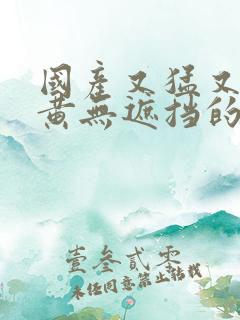 國產又猛又
黄無遮挡的
壹叁贰零
未任同意禁止转载